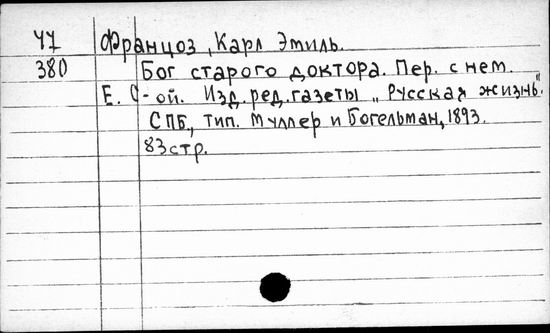 47 Францоз, Карл Эмиль.
380 Бог старого доктора. Пер. с нем.
Е. О-ой. Изд. ред. газеты „Русская жизнь".
СПБ., тип. Муллер и Богельман, 1893.
83 стр.